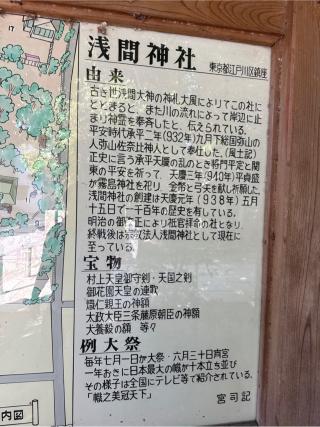 浅間神社
東京都江戸川区鎮座
由来
古き世浅間大神の神札大風によりてこの社に
とどまると、また川の流れによって岸辺に止
まり神霊を奉斉したと、伝えられている。
平安時代承平二年(932年)九月下総国弥山の
人弥山佐奈辻神人として奉仕した。(風土記)
正史に言う承平天慶の乱のとき将門平定と関
東の平安を祈って、天慶三年(940年)平貞盛
が霧島神社を祀り、金幣と弓矢を献じ祈願した。
浅間神社の創建は天慶元年(938年)五月
十五日で一千百年の歴史を有している。
明治の御
により祇官拝命の社となり、
終戦後は宗教法人浅間神社として現在に
至っている。
宝物
村上天皇御守剣・天国之剣
御花園天皇の連歌
熾仁親王の神額
太政大臣三条藤原朝臣の神額
犬養毅の額 等々
例大祭
毎年七月一日か大祭・六月三十日宵宮
一年おきに日本最大の幟が十本立ち並び
その様子は全国にテレビ等で紹介されている。
「幟之美冠天下」
宮司記
内図